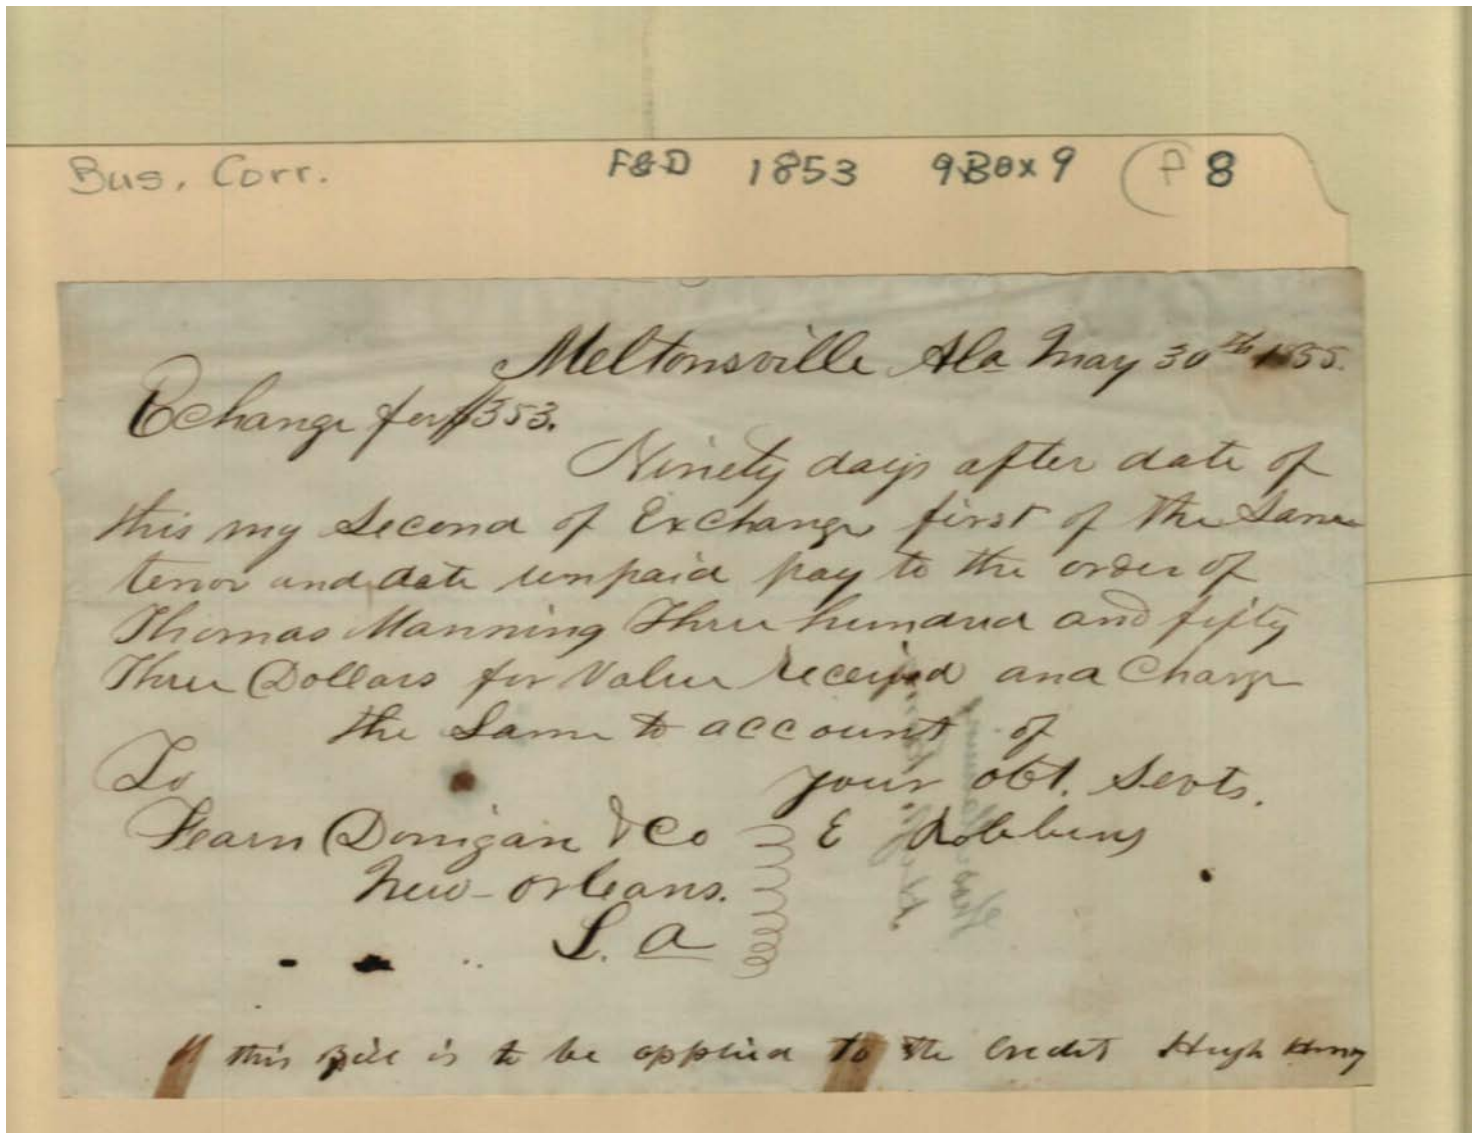 Bus. Corr. F&D 1853 9Box9 (A 8
Meltonsville Ala May 30th 1855.
Echange for $353.
Ninety days after date of
this my Second of Exchange first of the Same
tenor and date unpaid pay to the order of
Thomas Manning Three hundred and fifty
Three Dollars for Value received and Charge
the Same to account of
To your obt. Servts.
Fearn Donigan & Co E Robbins
New-Orleans.
L. a
this Bill is to be applied to the Credit Hugh Henry